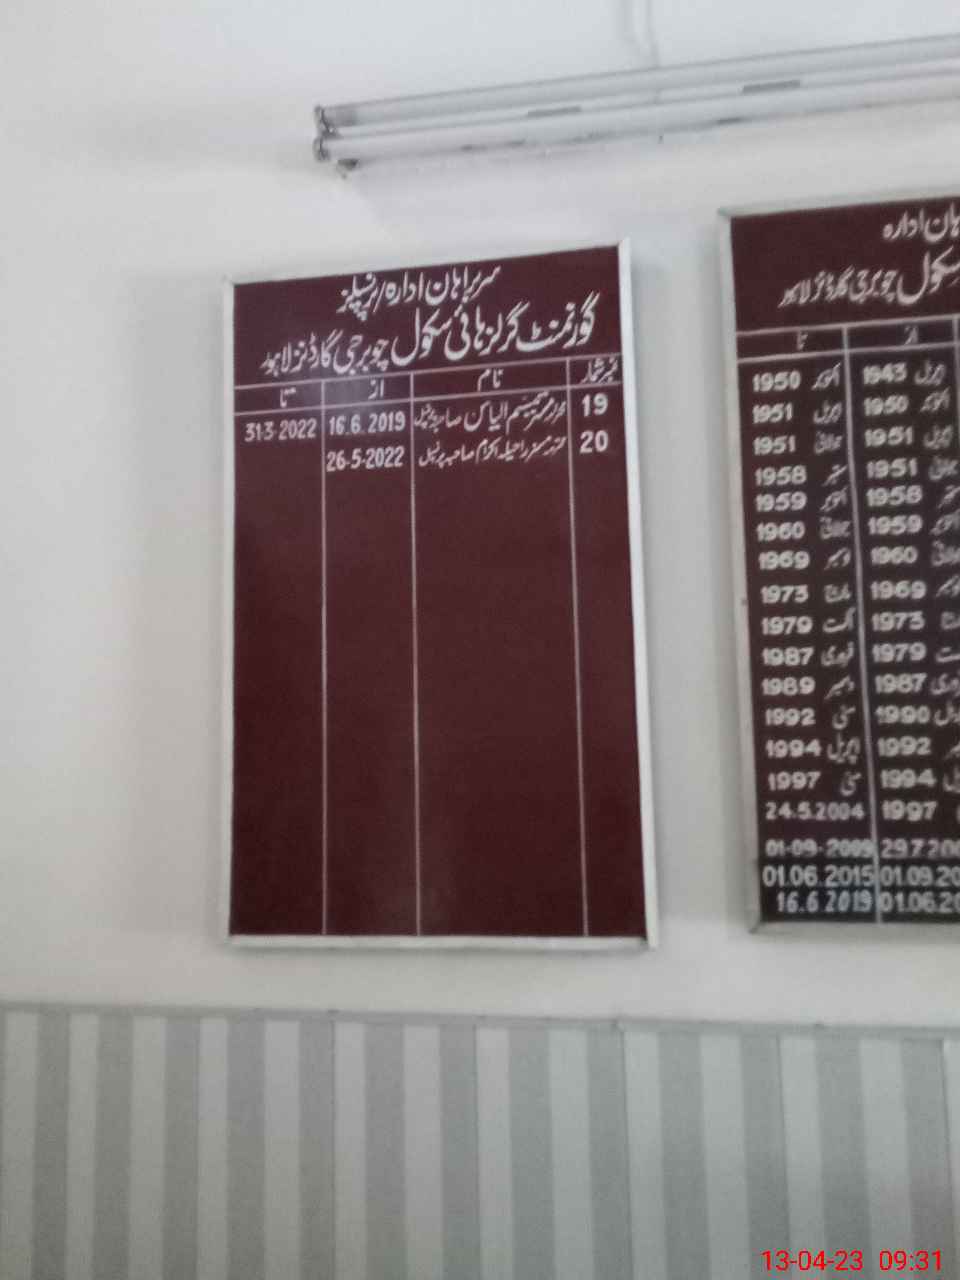 سربراہان ادارہ/پرنسپلز
گورنمنٹ گرلز ہائی سکول چوبرجی گارڈنز لاہور
نمبر شمار نام از تا
19 الیاس صاحبہ پرنسپل 16.6.2019 31-3-2022
20 محترمہ مسز راحیلہ اکرم صاحبہ پرنسپل 26-5-2022
ادارہ
سکول چوبرجی گارڈنز لاہور
از تا
اپریل 1943 اکتوبر 1950
اکتوبر 1950 اپریل 1951
اپریل 1951 جولائی 1951
جولائی 1951 ستمبر 1958
ستمبر 1958 اکتوبر 1959
اکتوبر 1959 جولائی 1960
جولائی 1960 دسمبر 1969
دسمبر 1969 مارچ 1973
1973 اگست 1979
1979 فروری 1987
فروری 1987 دسمبر 1989
1990 مئی 1992
1992 اپریل 1994
1994 مئی 1997
1997 24.5.2004
29.7.200 01-09-2009
01.09.20 01.06.2015
01.06.20 16.6.2019
13-04-23 09:31